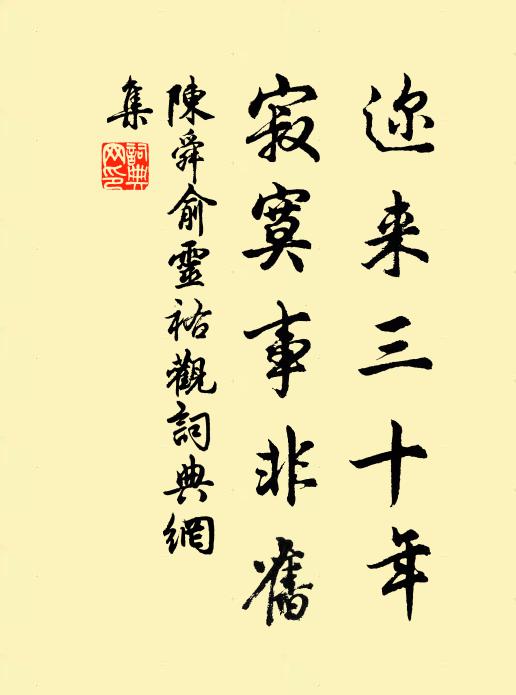 迩来三十年
寂寞事非舊
陳舜俞靈祐觀詞典網
集
詞典網印